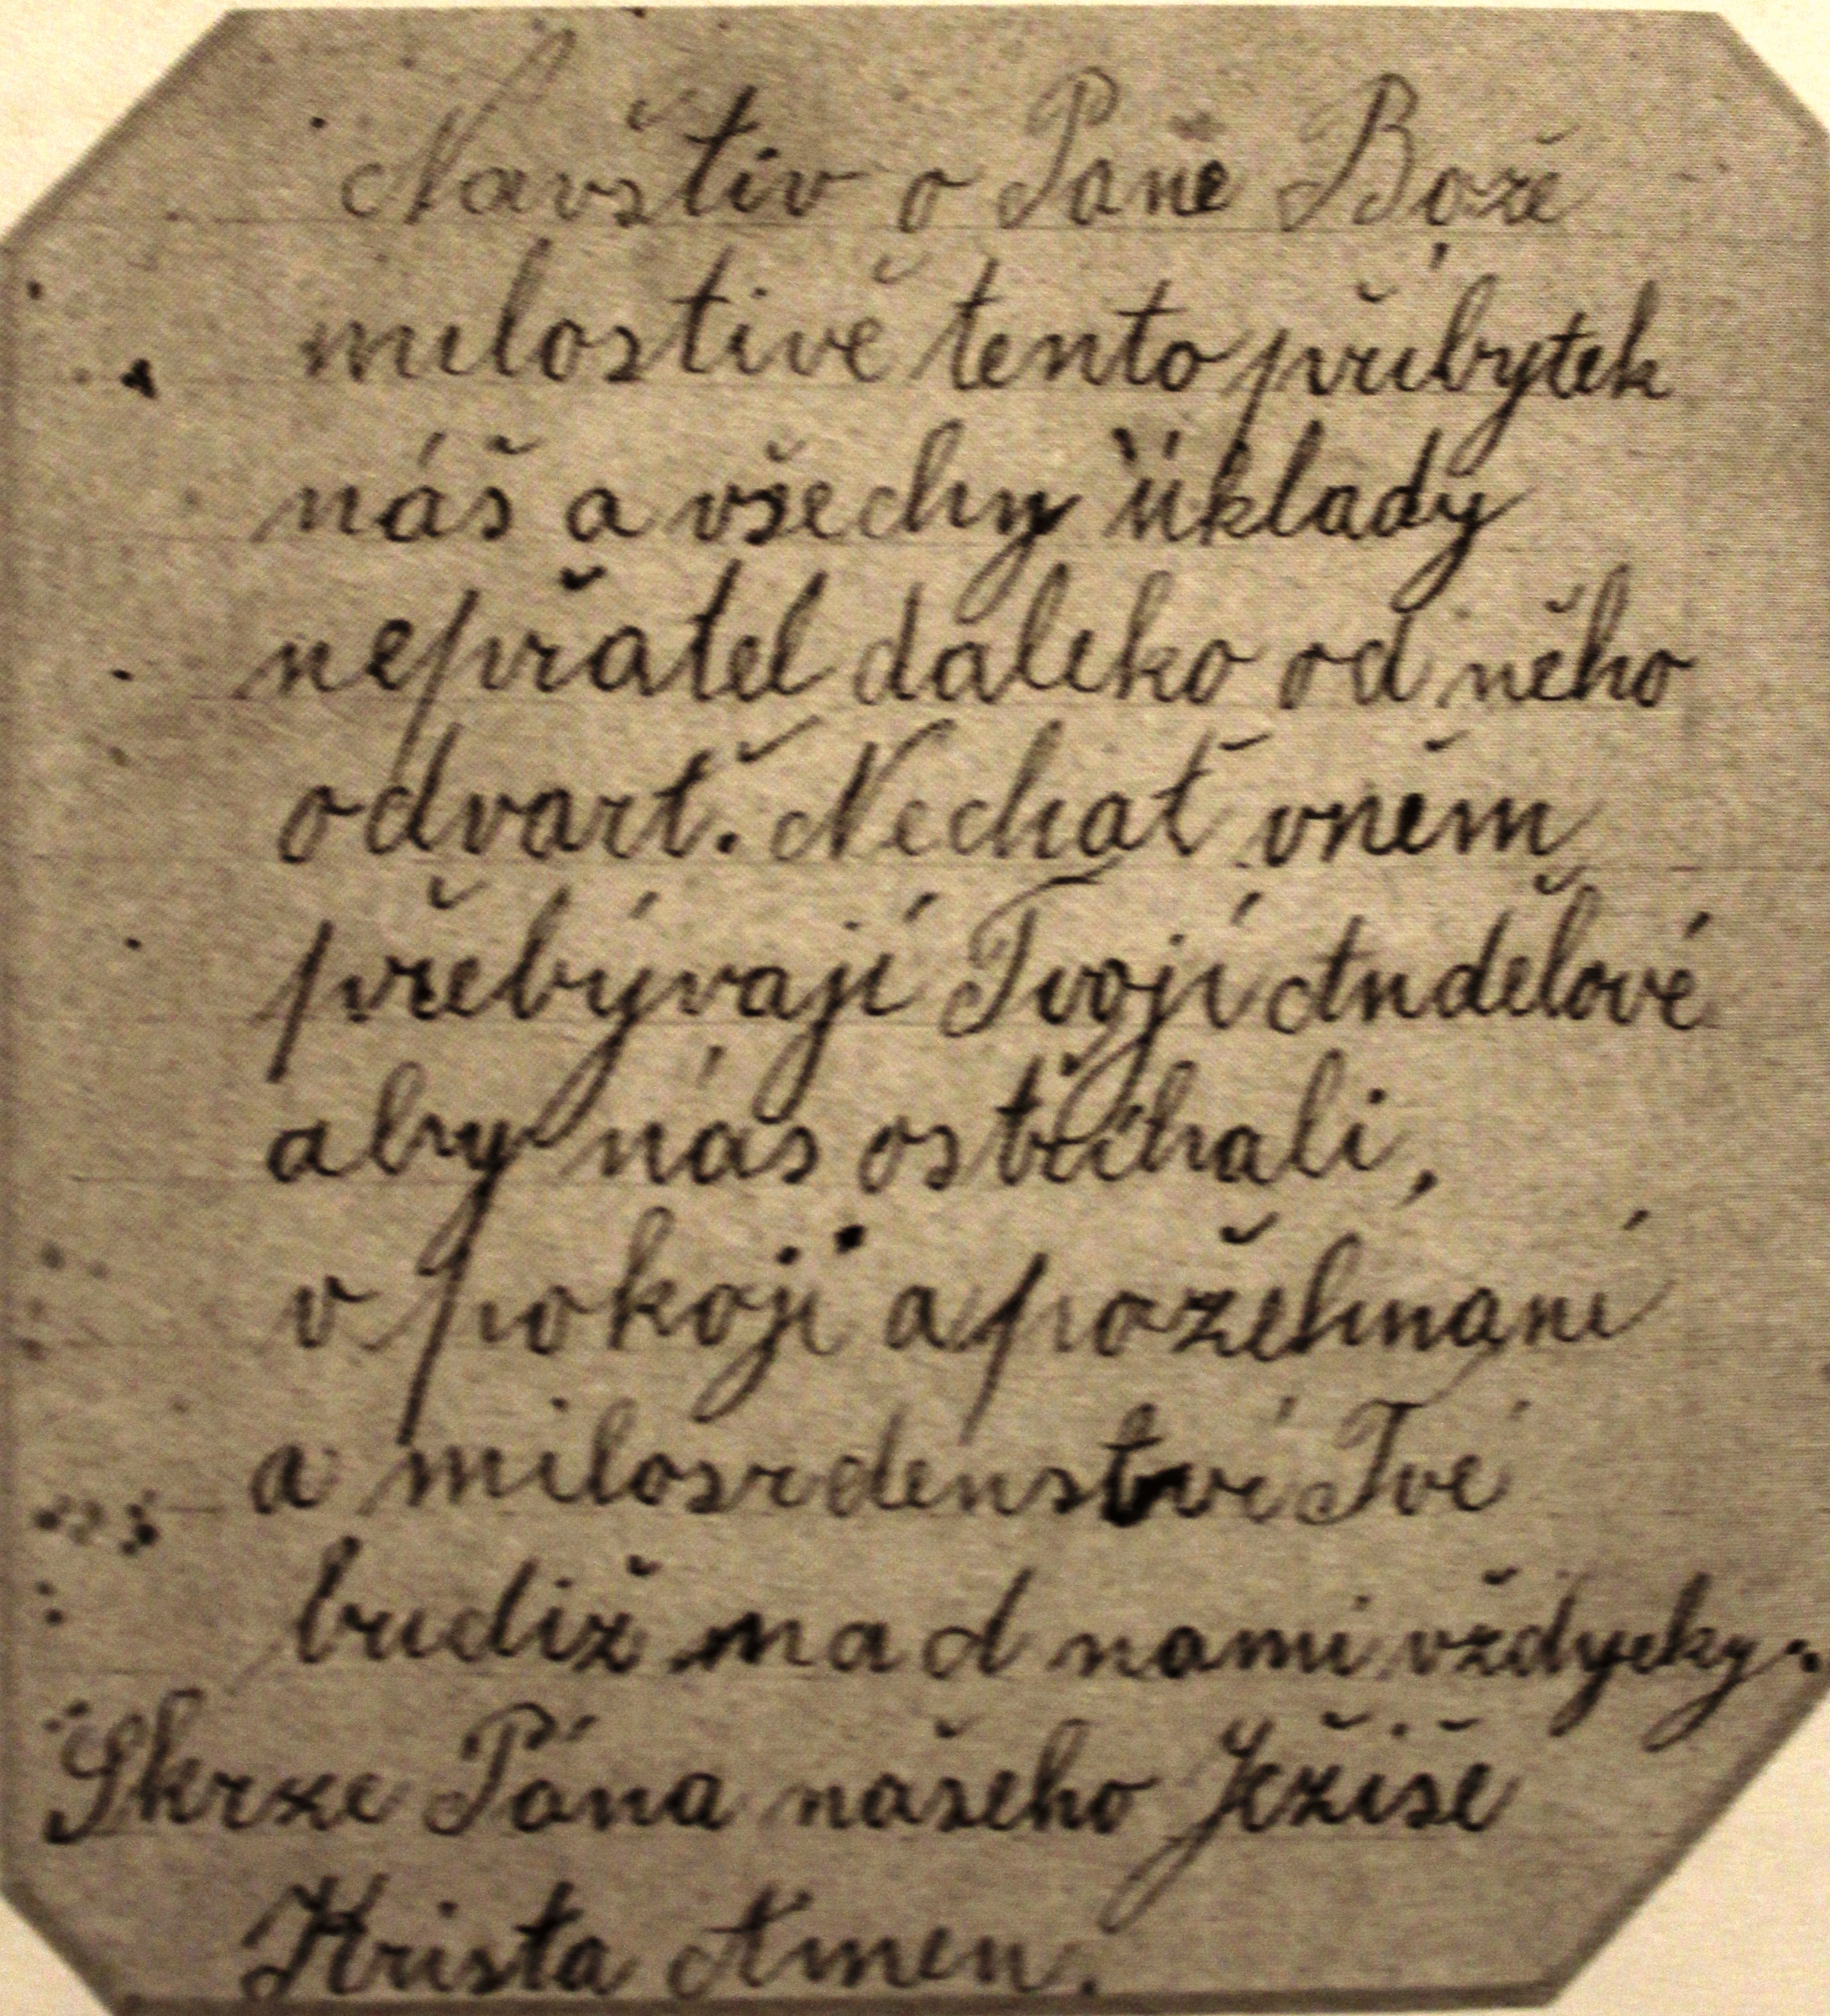 Navštiv o Pane Bože
milostivě tento přibytek
náš a všechy úklady
nepřatel daleko od něho
odvart. Nechať vněm
přebývají Tvojí Andělové
aby nás ostříhali,
v pokoji a požehnaní
a milosrdenství Tvé
budiž nad nami vždycky.
Skrze Pána našeho Ježiše
Krista Amen.